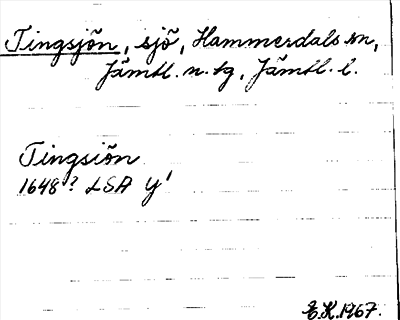 Tingsjön, sjö, Hammerdals sn,
Jämtl. n. tg, Jämtl. l.
Tingsiön
1648? LSA Y'
E.K. 1967.